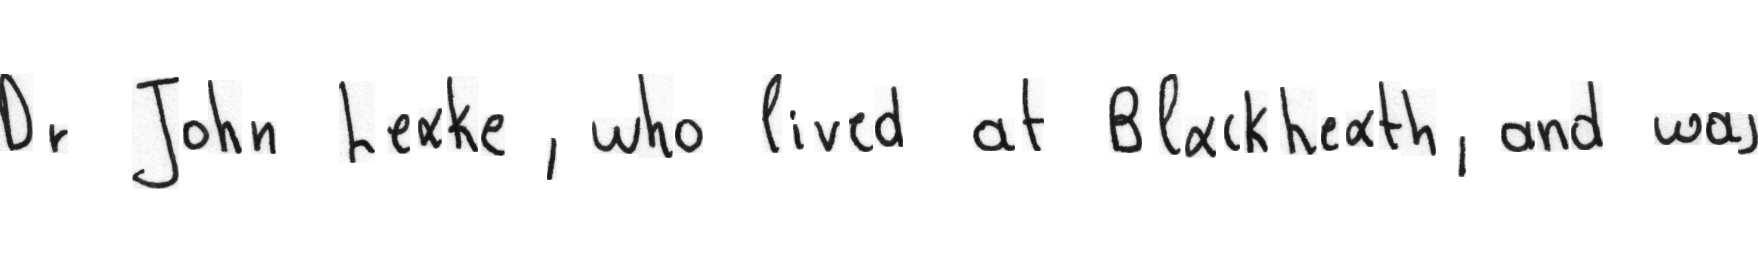 Dr John Leake, who lived at Blackheath, and was